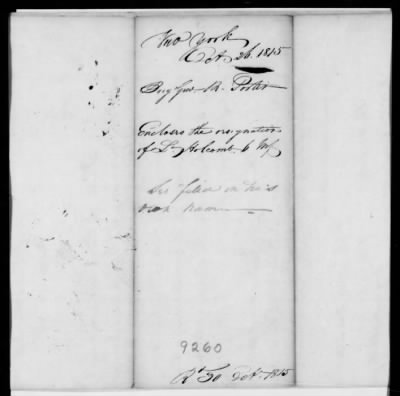 New York
Oct. 26. 1815
Brig Gen. M. Porter
Encloses the resignation
of Lt Holcomb 6 Inf.
Lre filed in his
own name
9260
Rd 30 Oct. 1815